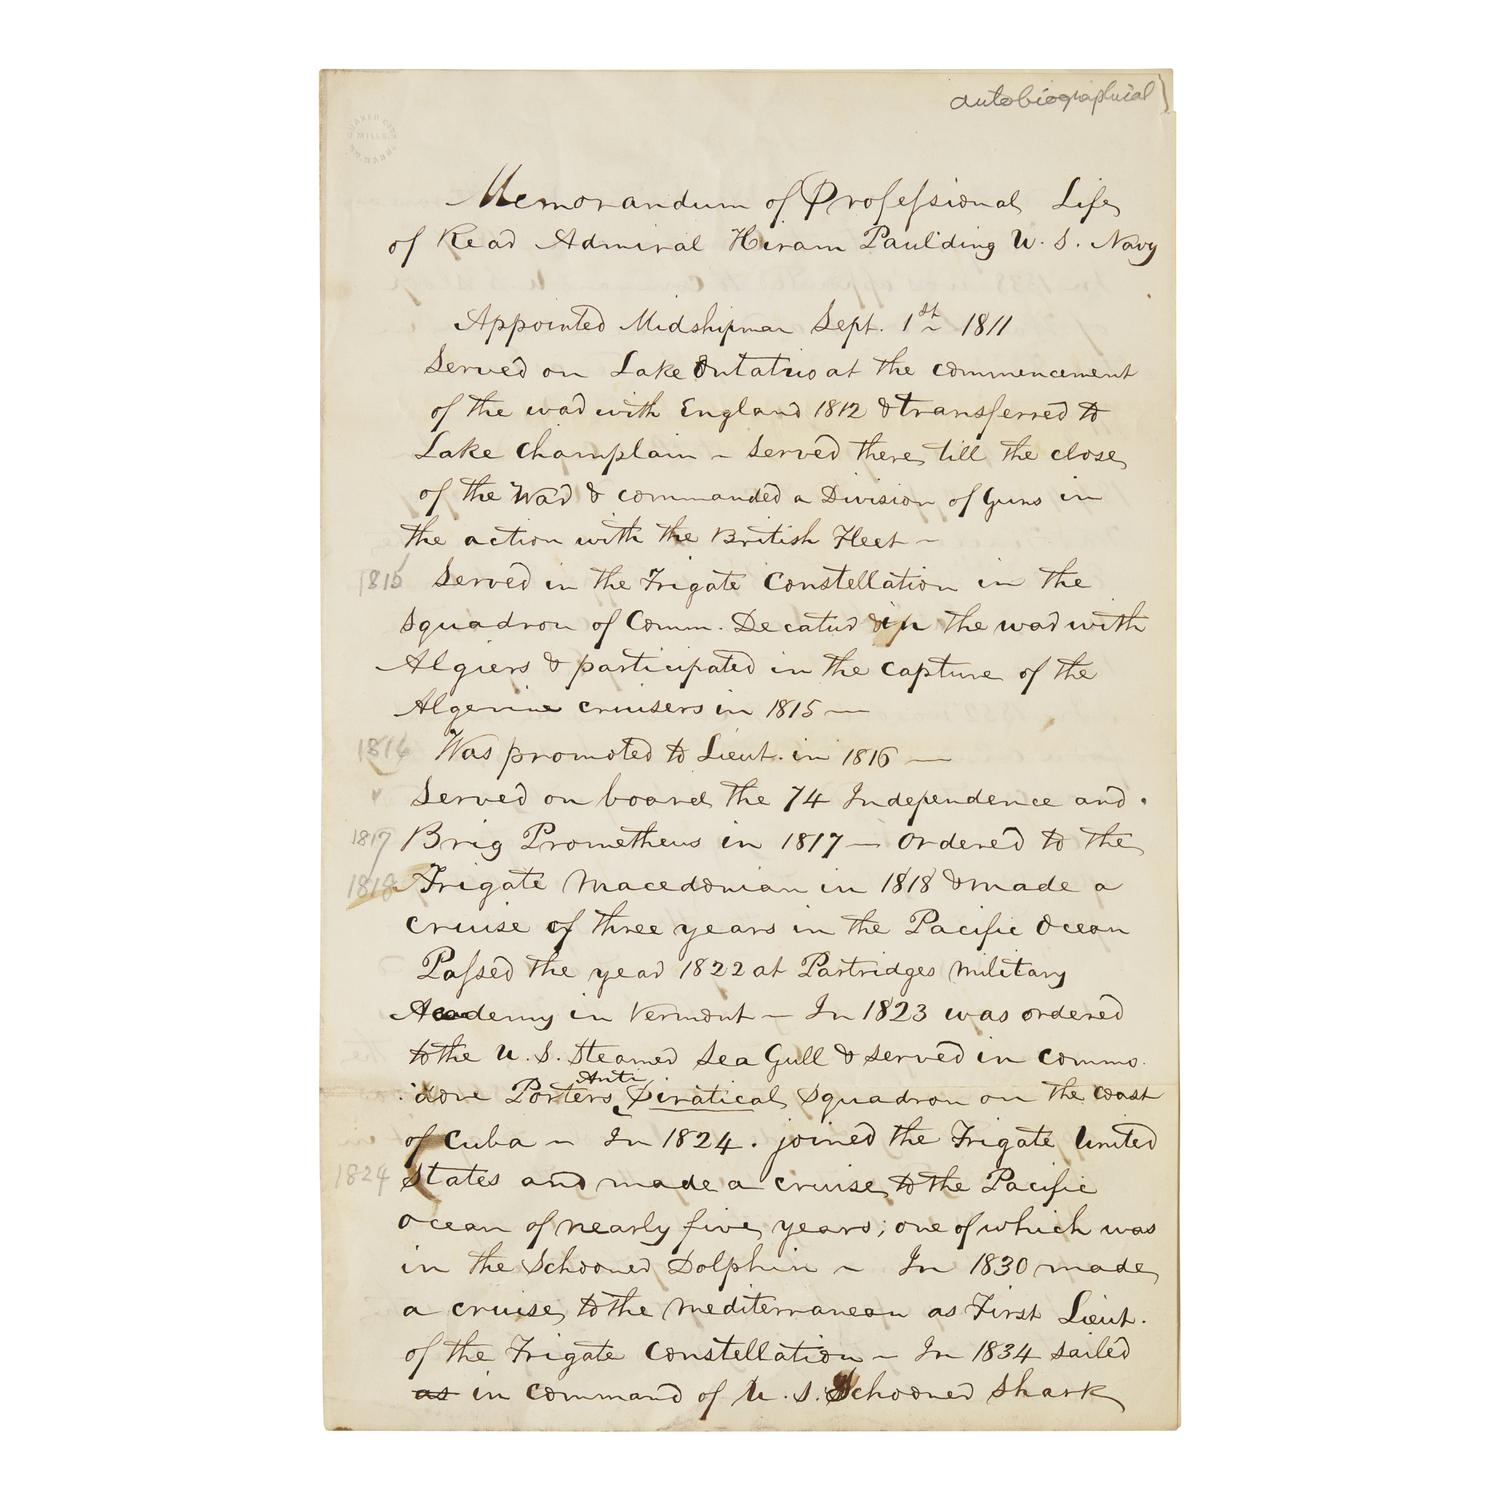 autobiographical
QUAKER CITY
MILLS
Memorandum of Professional Life
of Rear Admiral Hiram Paulding U. S. Navy
Appointed Midshipman Sept. 1st 1811
Served on Lake Ontatrio at the commencement
of the war with England 1812 & transferred to
Lake Champlain – served there till the close
of the War & commanded a Division of Guns in
the action with the British Fleet –
1815 Served in the Frigate Constellation in the
squadron of Comm. Decatur in the war with
Algiers & participated in the capture of the
Algerine cruisers in 1815 —
1816 Was promoted to Lieut. in 1816 —
Served on board the 74 Independence and
1817 Brig Prometheus in 1817 — Ordered to the
1818 Frigate Macedonian in 1818 & made a
cruise of three years in the Pacific Ocean
Passed the year 1822 at Partridges Military
Academy in Vermont – In 1823 was ordered
to the U. S. Steamer Sea Gull & served in Commo-
dore Porters Anti Piratical Squadron on the coast
of Cuba – In 1824. joined the Frigate United
1824 States and made a cruise to the Pacific
Ocean of nearly five years; one of which was
in the Schooner Dolphin – In 1830 made
a cruise to the Mediterranean as First Lieut.
of the Frigate Constellation – In 1834 sailed
as in command of U. S. Schooner Shark